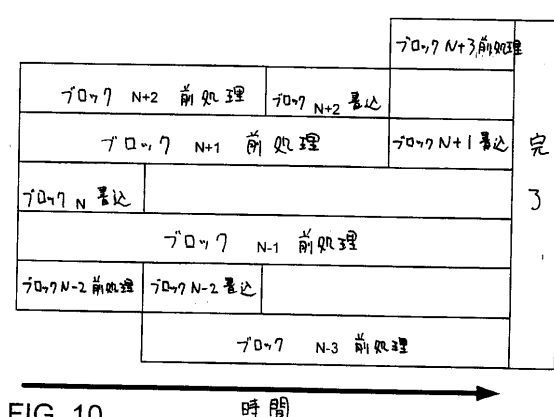 ブロック N+3 前処理
ブロック N+2 前処理 ブロック N+2 書込
ブロック N+1 前処理 ブロック N+1 書込
完了
ブロック N 書込
ブロック N-1 前処理
ブロック N-2 前処理 ブロック N-2 書込
ブロック N-3 前処理
FIG. 10 時間